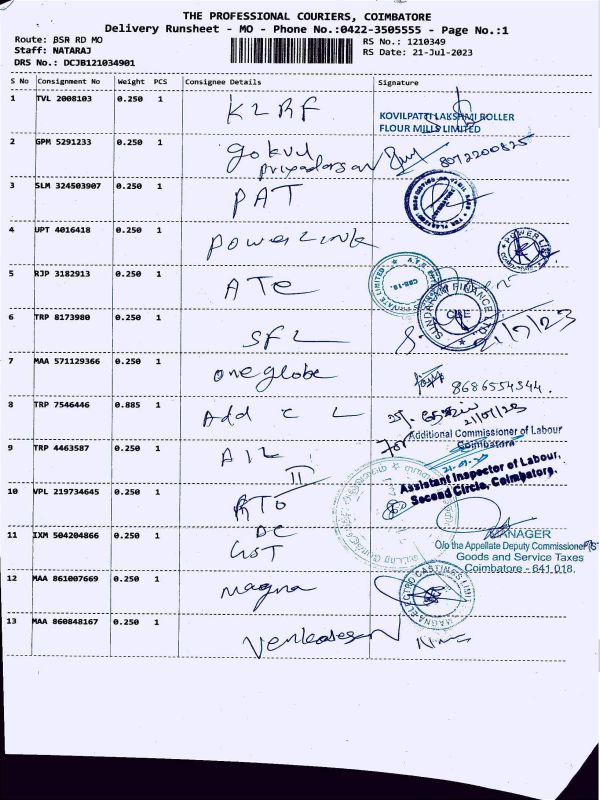 THE PROFESSIONAL COURIERS, COIMBATORE
Delivery Runsheet - MO - Phone No.:0422-3505555 - Page No.:1
Route: BSR RD MO
Staff: NATARAJ
DRS No.: DCJB121034901
RS No.: 1210349
RS Date: 21-Jul-2023
S No Consignment No Weight PCS Consignee Details Signature
1 TVL 2008103 0.250 1 KLRF
KOVILPATTI LAKSHMI ROLLER
FLOUR MILLS LIMITED
2 GPM 5291233 0.250 1 gokul
priyadarsan
3 SLM 324503907 0.250 1 PAT
4 UPT 4016418 0.250 1 Powerlink
POWER LINK
5 RJP 3182913 0.250 1 ATE
PRIVATE LIMITED
CBE-18.
6 TRP 8173980 0.250 1 SFL
SUNDARAM FINANCE LTD.
CBE
21/7/23
7 MAA 571129366 0.250 1 oneglobe
8686554344.
8 TRP 7546446 0.885 1 Add C L
21/07/23
for
Additional Commissioner of Labour
Coimbatore
9 TRP 4463587 0.250 1 AIL
II
Assistant Inspector of Labour,
Second Circle, Coimbatore.
10 VPL 219734645 0.250 1 RTO
11 IXM 504204866 0.250 1 DC
GST
MANAGER
O/o the Appellate Deputy Commissioner
Goods and Service Taxes
Coimbatore - 641 018.
12 MAA 861007669 0.250 1 magna
MAGNA ELECTRO CASTINGS LIMITED
13 MAA 860848167 0.250 1 Venkadesan